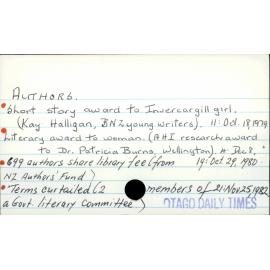 AUTHORS.
Short story award to Invercargill girl.
(Kay Halligan, BNZ young writers). 11: Oct. 18, 1979
Literary award to woman. (AHI research award
to Dr. Patricia Burns, Wellington). 4: Dec 8, "
699 authors share library fee (from 19: Oct. 29, 1980
NZ Authors' Fund)
Terms curtailed (2 members of 21: Nov 25, 1982
a Govt. literary committee)
OTAGO DAILY TIMES